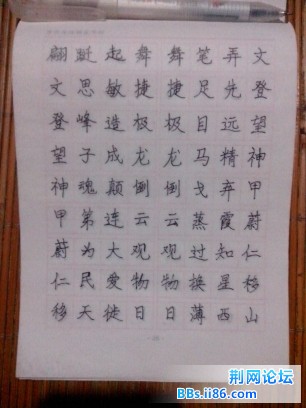 翩跹起舞舞笔弄文
文思敏捷捷足先登
登峰造极极目远望
望子成龙龙马精神
神魂颠倒倒戈弃甲
甲第连云云蒸霞蔚
蔚为大观观过知仁
仁民爱物物换星移
移天徙日日薄西山
荆网论坛
BBs.ii86.com